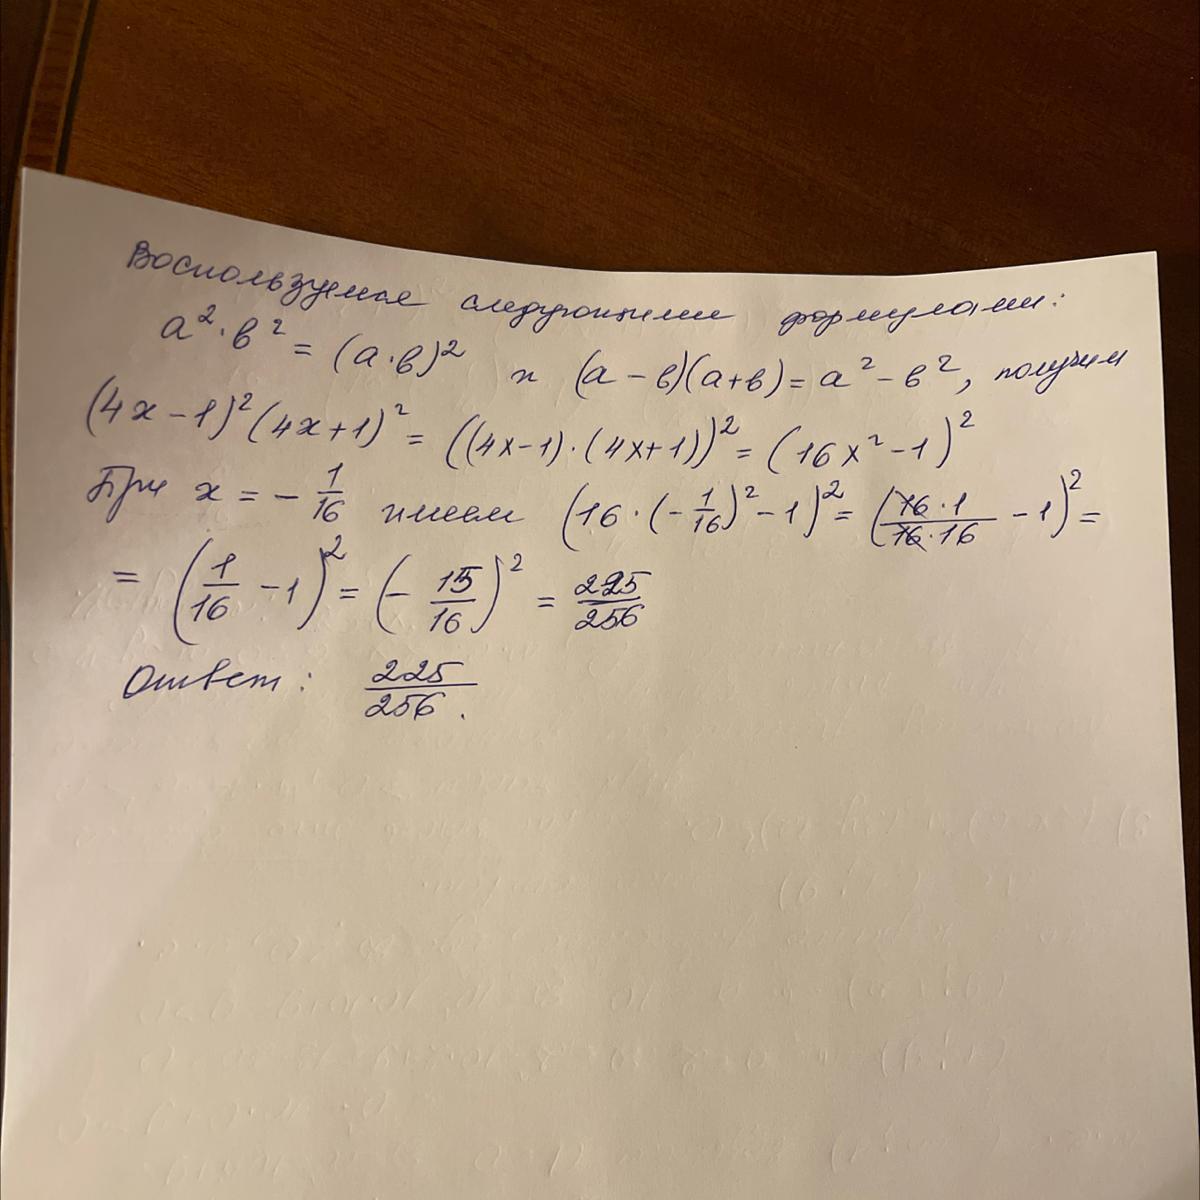 Воспользуемся следующими формулами:
a²·b² = (a·b)² и (a-b)(a+b) = a²-b², получим
(4x-1)²(4x+1)² = ((4x-1)·(4x+1))² = (16x²-1)²
При x = -1/16 имеем (16·(-1/16)²-1)² = (16·1/16·16 -1)² =
= (1/16 -1)² = (-15/16)² = 225/256
Ответ: 225/256.